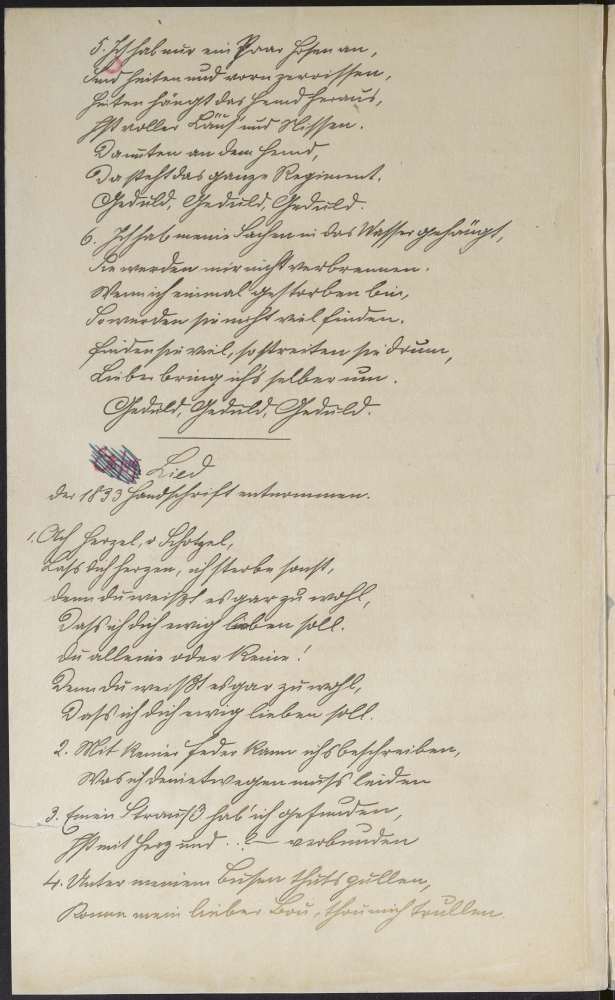 5. Ich hab nur ein Paar Hosen an,
Sind hinten und vorn zerrissen,
Hinten hängt das Hemd heraus,
Ist voller Läus' und Nissen.
Daunten an dem Hemd,
Da steht das ganze Regiment.
Geduld, Geduld, Geduld.
6. Ich hab meine Sachen in das Wasser gehängt,
Sie werden mir nicht verbrennen.
Wenn ich einmal gestorben bin,
So werden sie nicht viel finden.
Finden sie viel, so streiten sie drum,
Lieber bring ich's selber um.
Geduld, Geduld, Geduld.
Lied
der 1833 Handschrift entnommen.
1. Ach Herzel, o Schatzel,
Lass dich herzen, ich sterbe sonst,
denn du weißt es gar zu wohl,
Dass ich dich ewig lieben soll.
Du alleine oder keine!
Denn du weißt es gar zu wohl,
Dass ich dich ewig lieben soll.
2. Mit keiner Feder kann ich's beschreiben,
Was ich deinetwegen muss leiden
3. Einen Strauß hab' ich gefunden,
Ist mit Herz und ..?— verbunden
4. Unter meinem Busen thuts
Komm mein lieber thou mich